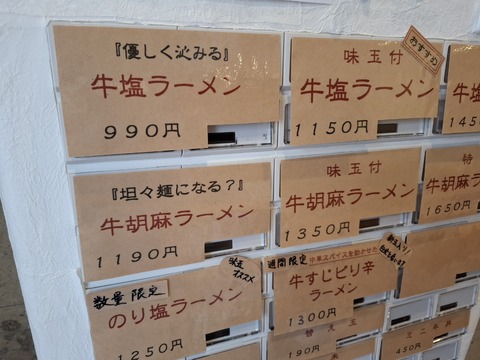 『優しく沁みる』
牛塩ラーメン
990円
おすすめ
味玉付
牛塩ラーメン
1150円
牛塩
145
『坦々麺になる？』
牛胡麻ラーメン
1190円
味玉付
牛胡麻ラーメン
1350円
特
牛胡麻ラーメン
1650円
数量限定
のり塩ラーメン
1250円
店主
オススメ
週間限定 中華スパイスを効かせた
牛すじピリ辛
ラーメン
1300円
替え玉
190円
ミニ牛丼
450円